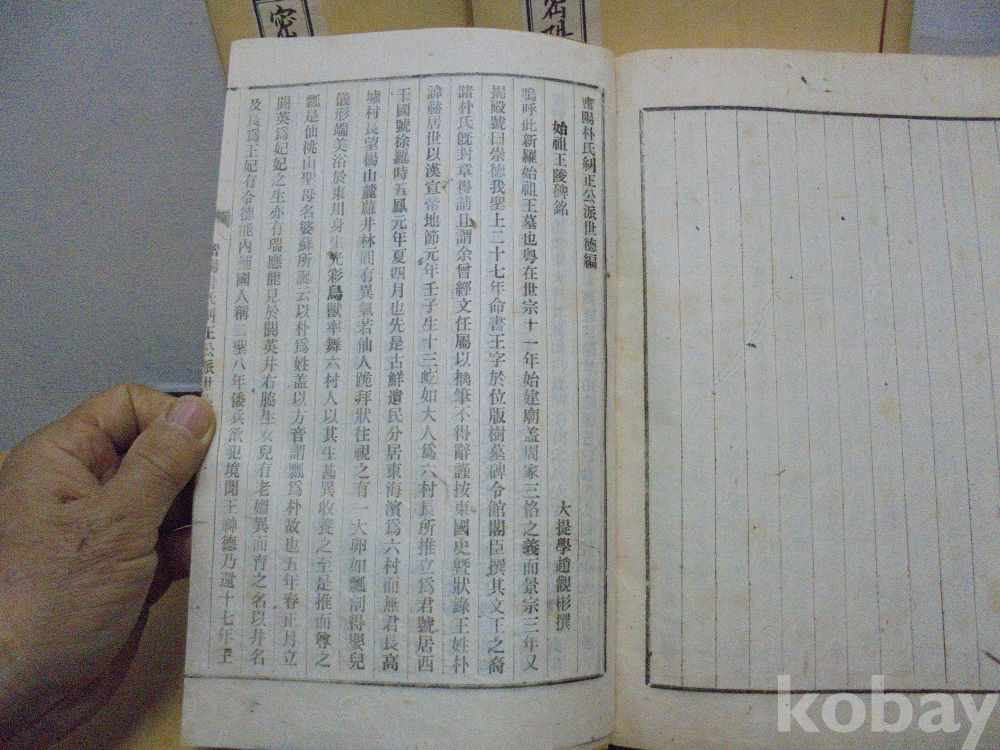 密陽朴氏糾正公派世德編
始祖王陵碑銘
大提學趙觀彬撰
嗚呼此新羅始祖王墓也粤在世宗十一年始建廟盖周家三恪之義而景宗三年又
揭殿號曰崇德我聖上二十七年命書王字於位版樹墓碑令館閣臣撰其文王之裔
諸朴氏旣封章得請且謂余曾經文任屬以撝筆不得辭謹按東國史曁狀錄王姓朴
諱赫居世以漢宣帝地節元年壬子生十三屹如大人爲六村長所推立爲君號居西
干國號徐羅時五鳳元年夏四月也先是古鮮遺民分居東海濱爲六村而無君長高
墟村長望楊山麓蘿井林間有異氣若仙人跪拜狀往視之有一大卵如瓢剖得嬰兒
儀形端美浴於東川身生光彩鳥獸率舞六村人以其生甚異收養之至是推而尊之
瓢是仙桃山聖母名婆蘇所誕云以朴爲姓盖以方音謂瓢爲朴故也五年春正月立
閼英爲妃妃之生亦有瑞應龍見於閼英井右脇生女兒有老嫗異而育之名以井名
及長爲王妃有令德能內輔國人稱二聖八年倭兵欲犯境聞王神德乃還十七年王
氏糾正公派世
密
密
kobay